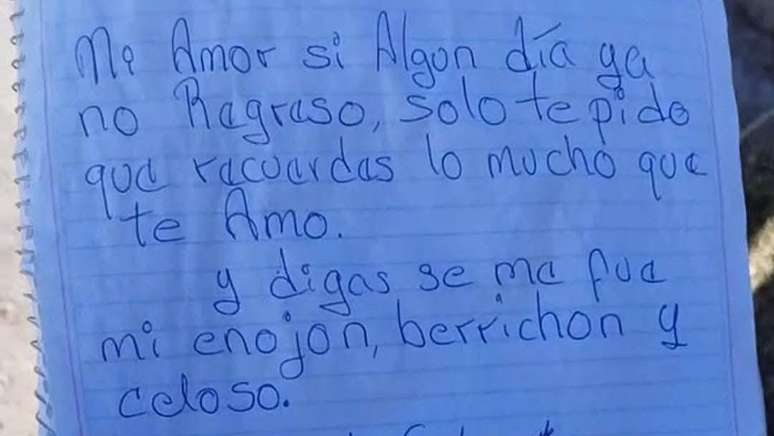 Mi Amor si Algon día ya
no Regreso, solo te pido
que recuerdas lo mucho que
te Amo.
y digas se me fue
mi enojon, berrichon y
celoso.